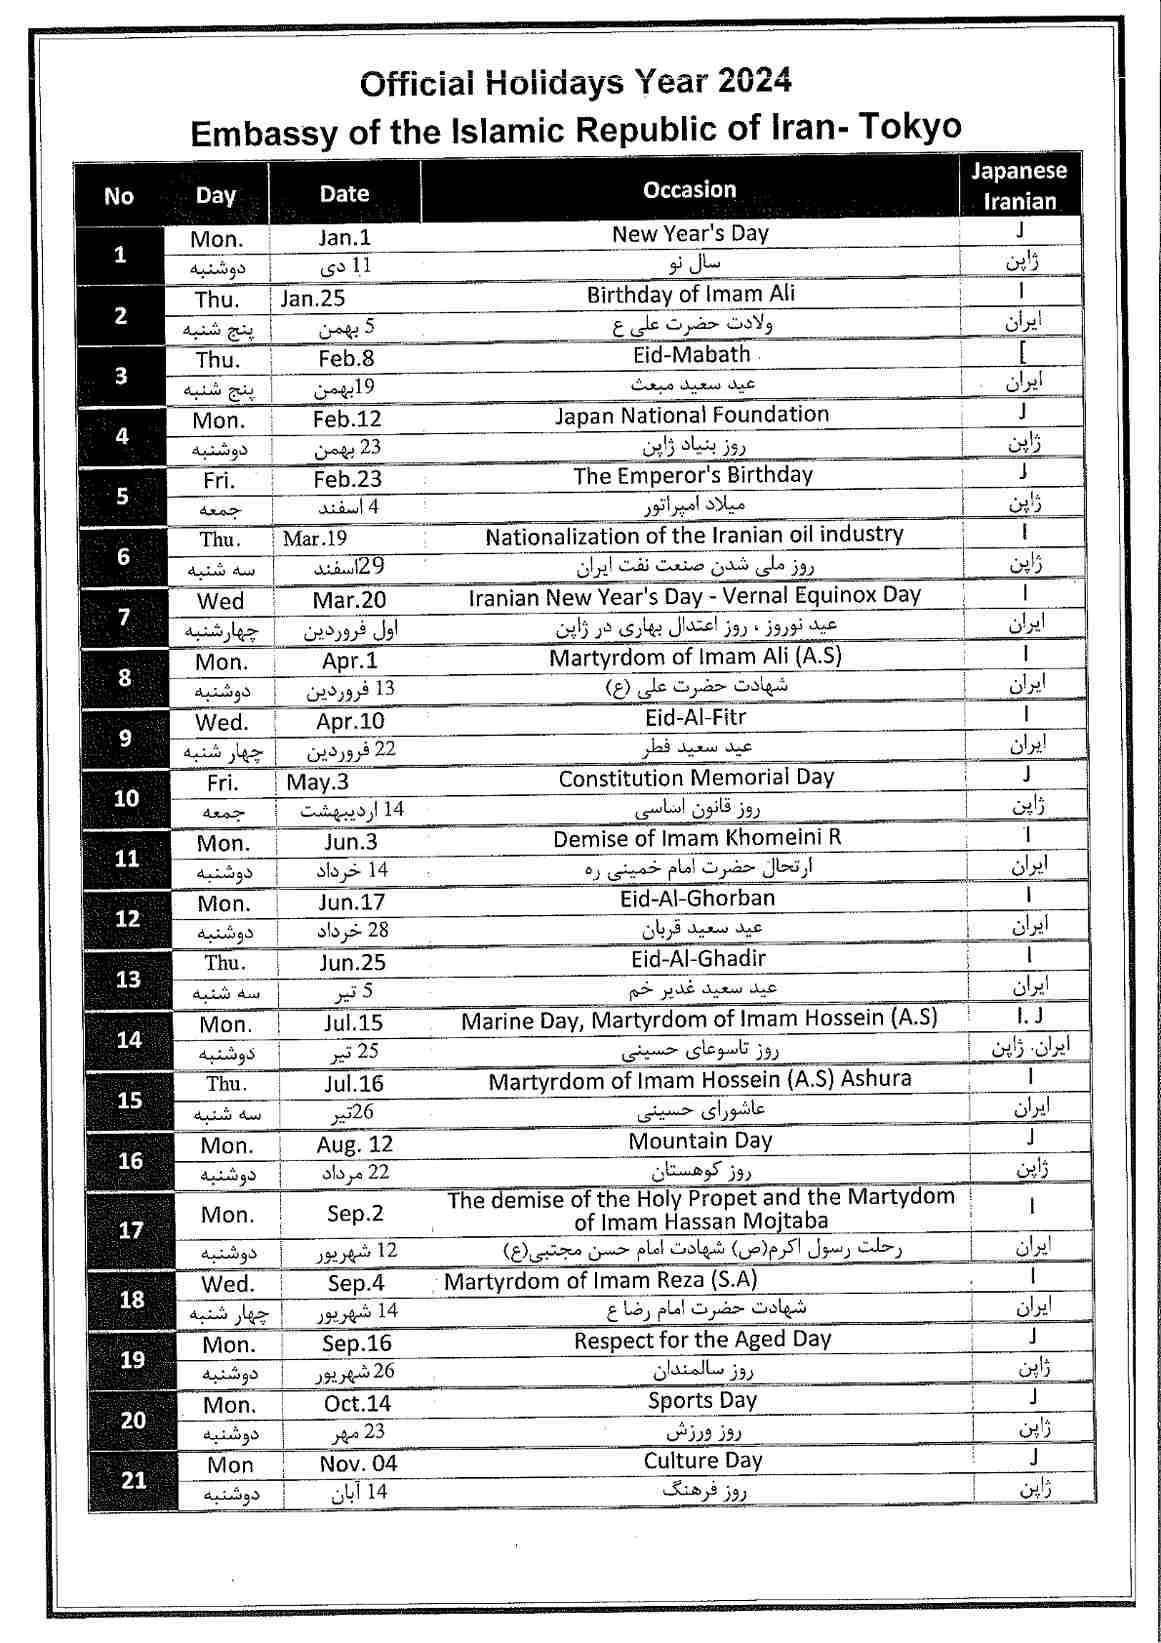 Official Holidays Year 2024
Embassy of the Islamic Republic of Iran- Tokyo
No Day Date Occasion Japanese Iranian
1 Mon. Jan.1 New Year's Day J
دوشنبه 11 دی سال نو ژاپن
2 Thu. Jan.25 Birthday of Imam Ali I
پنج شنبه 5 بهمن ولادت حضرت علی ع ایران
3 Thu. Feb.8 Eid-Mabath I
پنج شنبه 19بهمن عید سعید مبعث ایران
4 Mon. Feb.12 Japan National Foundation J
دوشنبه 23 بهمن روز بنیاد ژاپن ژاپن
5 Fri. Feb.23 The Emperor's Birthday J
جمعه 4 اسفند میلاد امپراتور ژاپن
6 Thu. Mar.19 Nationalization of the Iranian oil industry I
سه شنبه 29اسفند روز ملی شدن صنعت نفت ایران ژاپن
7 Wed Mar.20 Iranian New Year's Day - Vernal Equinox Day I
چهارشنبه اول فروردین عید نوروز ، روز اعتدال بهاری در ژاپن ایران
8 Mon. Apr.1 Martyrdom of Imam Ali (A.S) I
دوشنبه 13 فروردین شهادت حضرت علی (ع) ایران
9 Wed. Apr.10 Eid-Al-Fitr I
چهار شنبه 22 فروردین عید سعید فطر ایران
10 Fri. May.3 Constitution Memorial Day J
جمعه 14 اردیبهشت روز قانون اساسی ژاپن
11 Mon. Jun.3 Demise of Imam Khomeini R I
دوشنبه 14 خرداد ارتحال حضرت امام خمینی ره ایران
12 Mon. Jun.17 Eid-Al-Ghorban I
دوشنبه 28 خرداد عید سعید قربان ایران
13 Thu. Jun.25 Eid-Al-Ghadir I
سه شنبه 5 تیر عید سعید غدیر خم ایران
14 Mon. Jul.15 Marine Day, Martyrdom of Imam Hossein (A.S) I. J
دوشنبه 25 تیر روز تاسوعای حسینی ایران. ژاپن
15 Thu. Jul.16 Martyrdom of Imam Hossein (A.S) Ashura I
سه شنبه 26تیر عاشورای حسینی ایران
16 Mon. Aug. 12 Mountain Day J
دوشنبه 22 مرداد روز کوهستان ژاپن
17 Mon. Sep.2 The demise of the Holy Propet and the Martydom of Imam Hassan Mojtaba I
دوشنبه 12 شهریور رحلت رسول اکرم(ص) شهادت امام حسن مجتبی(ع) ایران
18 Wed. Sep.4 Martyrdom of Imam Reza (S.A) I
چهار شنبه 14 شهریور شهادت حضرت امام رضا ع ایران
19 Mon. Sep.16 Respect for the Aged Day J
دوشنبه 26 شهریور روز سالمندان ژاپن
20 Mon. Oct.14 Sports Day J
دوشنبه 23 مهر روز ورزش ژاپن
21 Mon Nov. 04 Culture Day J
دوشنبه 14 آبان روز فرهنگ ژاپن